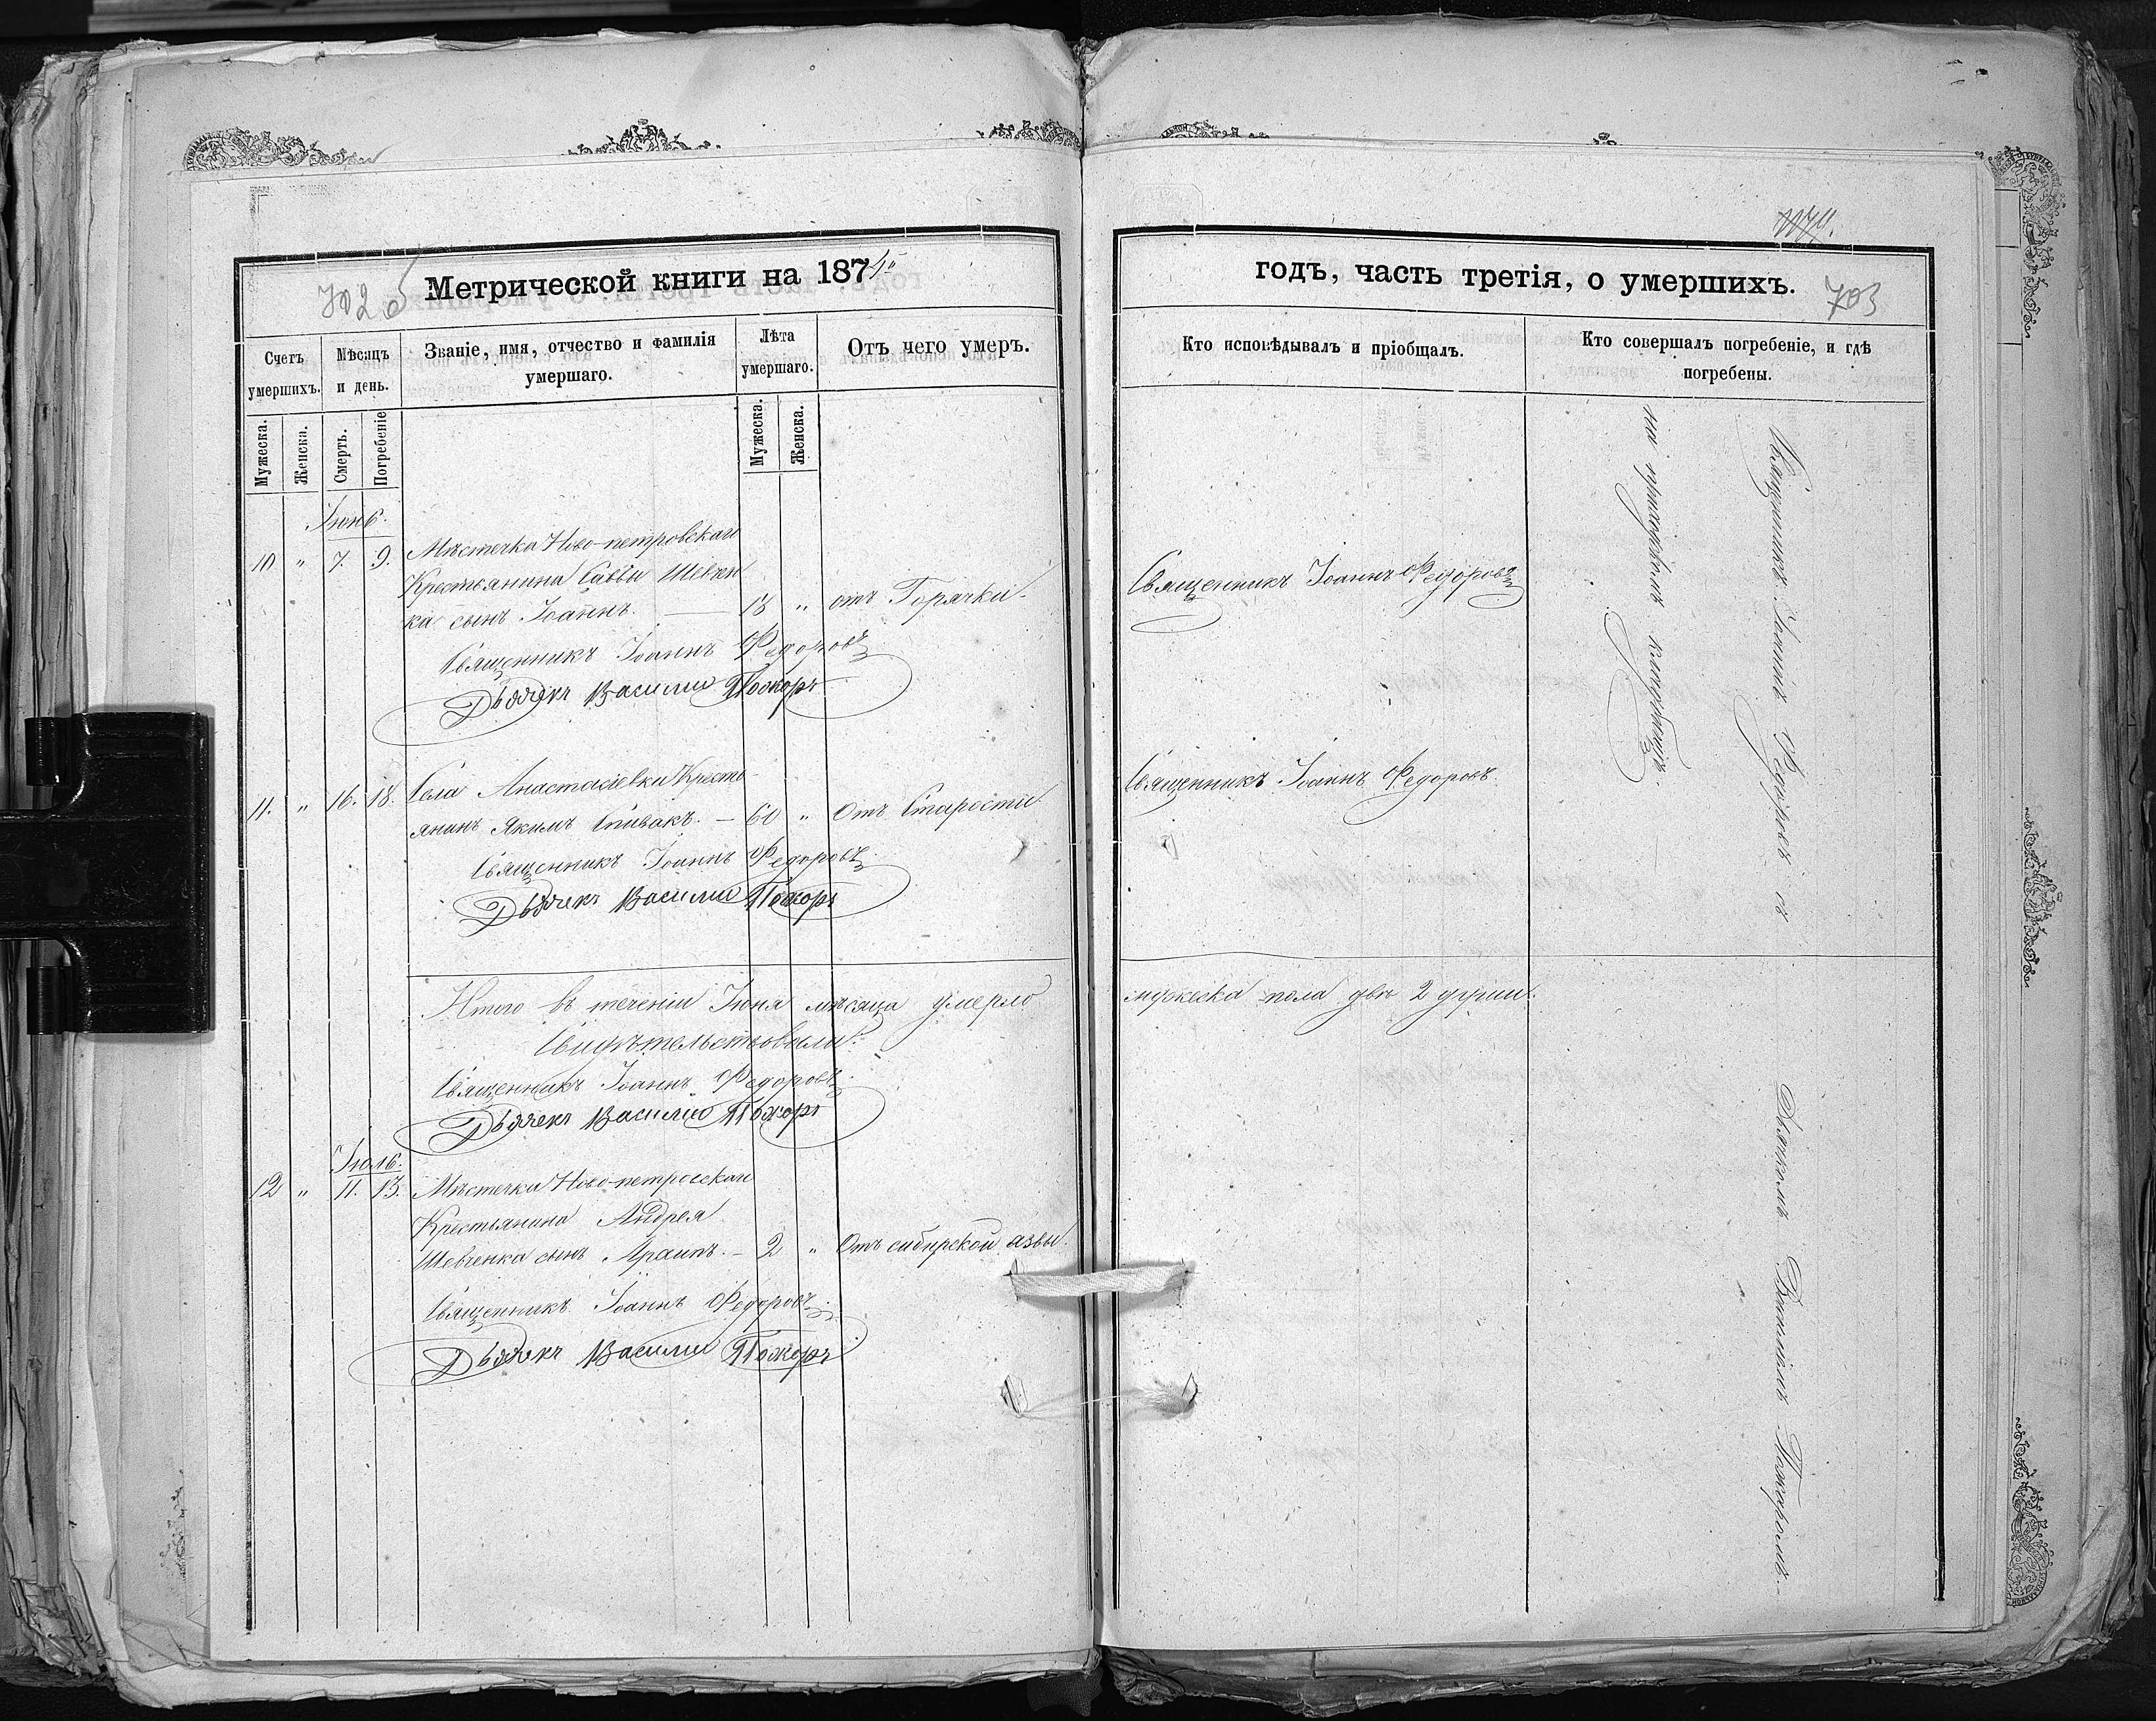 Метрической книги на 1874й
702
Счетъ умершихъ.
Мѣсяцъ и день.
Званіе, имя, отчество и фамилія умершаго.
Лѣта умершаго.
Отъ чего умеръ.
Мужеска.
Женска.
Смерть.
Погребеніе
Мужеска.
Женска.
Іюнь.
10 „ 7. 9. Мѣстечка Ново-петровскаго
Крестьянина Саввы Шевчен
ка сынъ Іоаннъ. — 18 „ отъ Горячки.
Священникъ Іоаннъ Федоровъ
Дьячекъ Василий
11. „ 16. 18. Села Анастасіевки Кресть-
янинъ Якимъ Спивакъ. — 60 „ Отъ Старости.
Священникъ Іоаннъ Федоровъ.
Дьячекъ Василий
Итого въ теченіи Іюня мѣсяца умерло
Свидѣтельствовали:
Священникъ Іоаннъ Федоровъ.
Дьячекъ Василий
Іюль.
12 „ 11. 13. Мѣстечка Ново-петровскаго
Крестьянина Андрея
Шевченка сынъ — 2 „ Отъ сибирской язвы.
Священникъ Іоаннъ Федоровъ.
Дьячекъ Василий
годъ, часть третія, о умершихъ.
703
Кто исповѣдывалъ и пріобщалъ.
Кто совершалъ погребеніе, и гдѣ
погребены.
Священникъ Іоаннъ Федоровъ
Священникъ Іоаннъ Федоровъ.
мужеска пола двѣ 2 души.
Священникъ Іоаннъ Федоровъ съ
Дьячкомъ Василіемъ
на приходскомъ кладбищѣ.